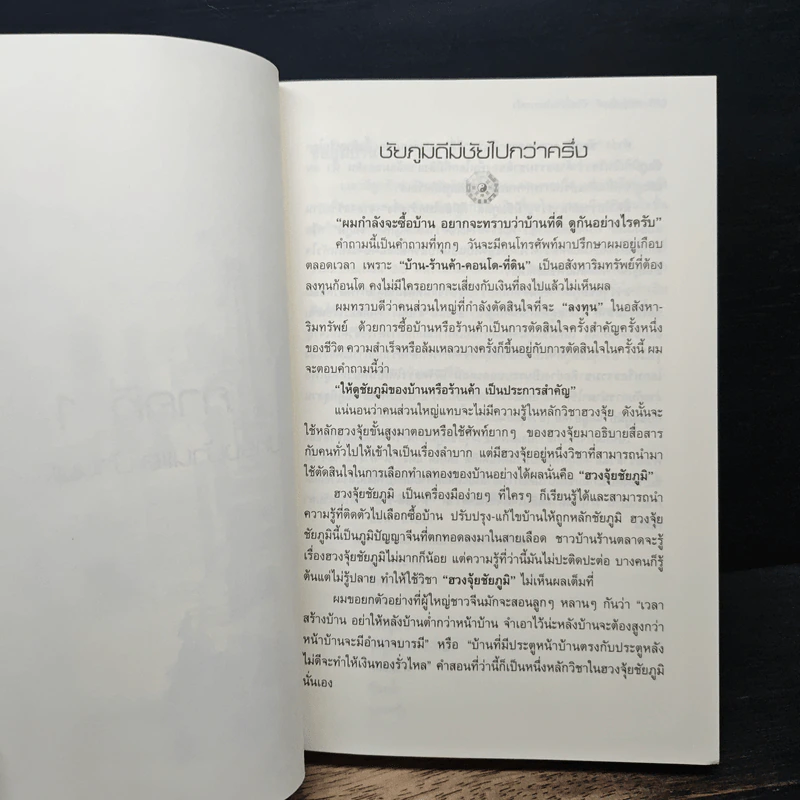 ชัยภูมิดีมีชัยไปกว่าครึ่ง
“ผมกำลังจะซื้อบ้าน อยากจะทราบว่าบ้านที่ดี ดูกันอย่างไรครับ”
คำถามนี้เป็นคำถามที่ทุกๆ วันจะมีคนโทรศัพท์มาปรึกษาผมอยู่เกือบ
ตลอดเวลา เพราะ “บ้าน-ร้านค้า-คอนโด-ที่ดิน” เป็นอสังหาริมทรัพย์ที่ต้อง
ลงทุนก้อนโต คงไม่มีใครอยากจะเสี่ยงกับเงินที่ลงไปแล้วไม่เห็นผล
ผมทราบดีว่าคนส่วนใหญ่ที่กำลังตัดสินใจที่จะ “ลงทุน” ในอสังหา-
ริมทรัพย์ ด้วยการซื้อบ้านหรือร้านค้าเป็นการตัดสินใจครั้งสำคัญครั้งหนึ่ง
ของชีวิต ความสำเร็จหรือล้มเหลวบางครั้งก็ขึ้นอยู่กับการตัดสินใจในครั้งนี้ ผม
จะตอบคำถามนี้ว่า
“ให้ดูชัยภูมิของบ้านหรือร้านค้า เป็นประการสำคัญ”
แน่นอนว่าคนส่วนใหญ่แทบจะไม่มีความรู้ในหลักวิชาฮวงจุ้ย ดังนั้นจะ
ใช้หลักฮวงจุ้ยขั้นสูงมาตอบหรือใช้ศัพท์ยากๆ ของฮวงจุ้ยมาอธิบายสื่อสาร
กับคนทั่วไปให้เข้าใจเป็นเรื่องลำบาก แต่มีฮวงจุ้ยอยู่หนึ่งวิชาที่สามารถนำมา
ใช้ตัดสินใจในการเลือกทำเลทองของบ้านอย่างได้ผลนั่นคือ “ฮวงจุ้ยชัยภูมิ”
ฮวงจุ้ยชัยภูมิ เป็นเครื่องมือง่ายๆ ที่ใครๆ ก็เรียนรู้ได้และสามารถนำ
ความรู้ที่ติดตัวไปเลือกซื้อบ้าน ปรับปรุง-แก้ไขบ้านให้ถูกหลักชัยภูมิ ฮวงจุ้ย
ชัยภูมินี้เป็นภูมิปัญญาจีนที่ตกทอดลงมาในสายเลือด ชาวบ้านร้านตลาดจะรู้
เรื่องฮวงจุ้ยชัยภูมิไม่มากก็น้อย แต่ความรู้ที่ว่านี้มันไม่ปะติดปะต่อ บางคนก็รู้
ต้นแต่ไม่รู้ปลาย ทำให้ใช้วิชา “ฮวงจุ้ยชัยภูมิ” ไม่เห็นผลเต็มที่
ผมขอยกตัวอย่างที่ผู้ใหญ่ชาวจีนมักจะสอนลูกๆ หลานๆ กันว่า “เวลา
สร้างบ้าน อย่าให้หลังบ้านต่ำกว่าหน้าบ้าน จำเอาไว้น่ะหลังบ้านจะต้องสูงกว่า
หน้าบ้านจะมีอำนาจบารมี” หรือ “บ้านที่มีประตูหน้าบ้านตรงกับประตูหลัง
ไม่ดีจะทำให้เงินทองรั่วไหล” คำสอนที่ว่านี้ก็เป็นหนึ่งหลักวิชาในฮวงจุ้ยชัยภูมิ
นั่นเอง